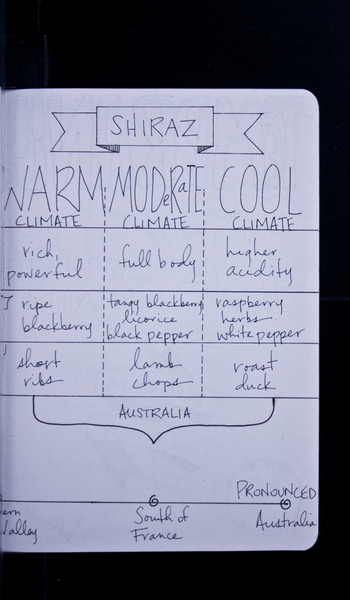 SHIRAZ
WARM MODERATE COOL
CLIMATE CLIMATE CLIMATE
rich, full body higher
powerful acidity
ripe tangy blackberry raspberry
blackberry licorice herbs
black pepper white pepper
short lamb roast
ribs chops duck
AUSTRALIA
PRONOUNCED
ern South of Australia
Valley France